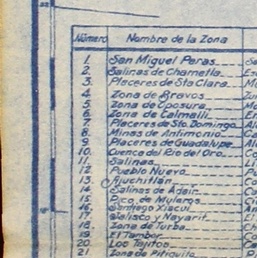 Número Nombre de la Zona
1. San Miguel Peras
2. Salinas de Chametla
3. Placeres de Sta Clara
4. Zona de Bravos
5. Zona de Oposura
6. Zona de Calmalli
7. Placeres de Sto. Domingo
8. Minas de Antimonio
9. Placeres de Guadalupe
10. Cuenca del Rio del Oro
11. Salinas
12. Pueblo Nuevo
13. Ajuchitlán
14. Salinas de Adair
15. Pico de Muleros
16. Santiago Yacui
17. Jalisco y Nayarit
18. Zona de Turba
19. El Tambor
20. Los Tajitos
21. Zona de Pitiquito